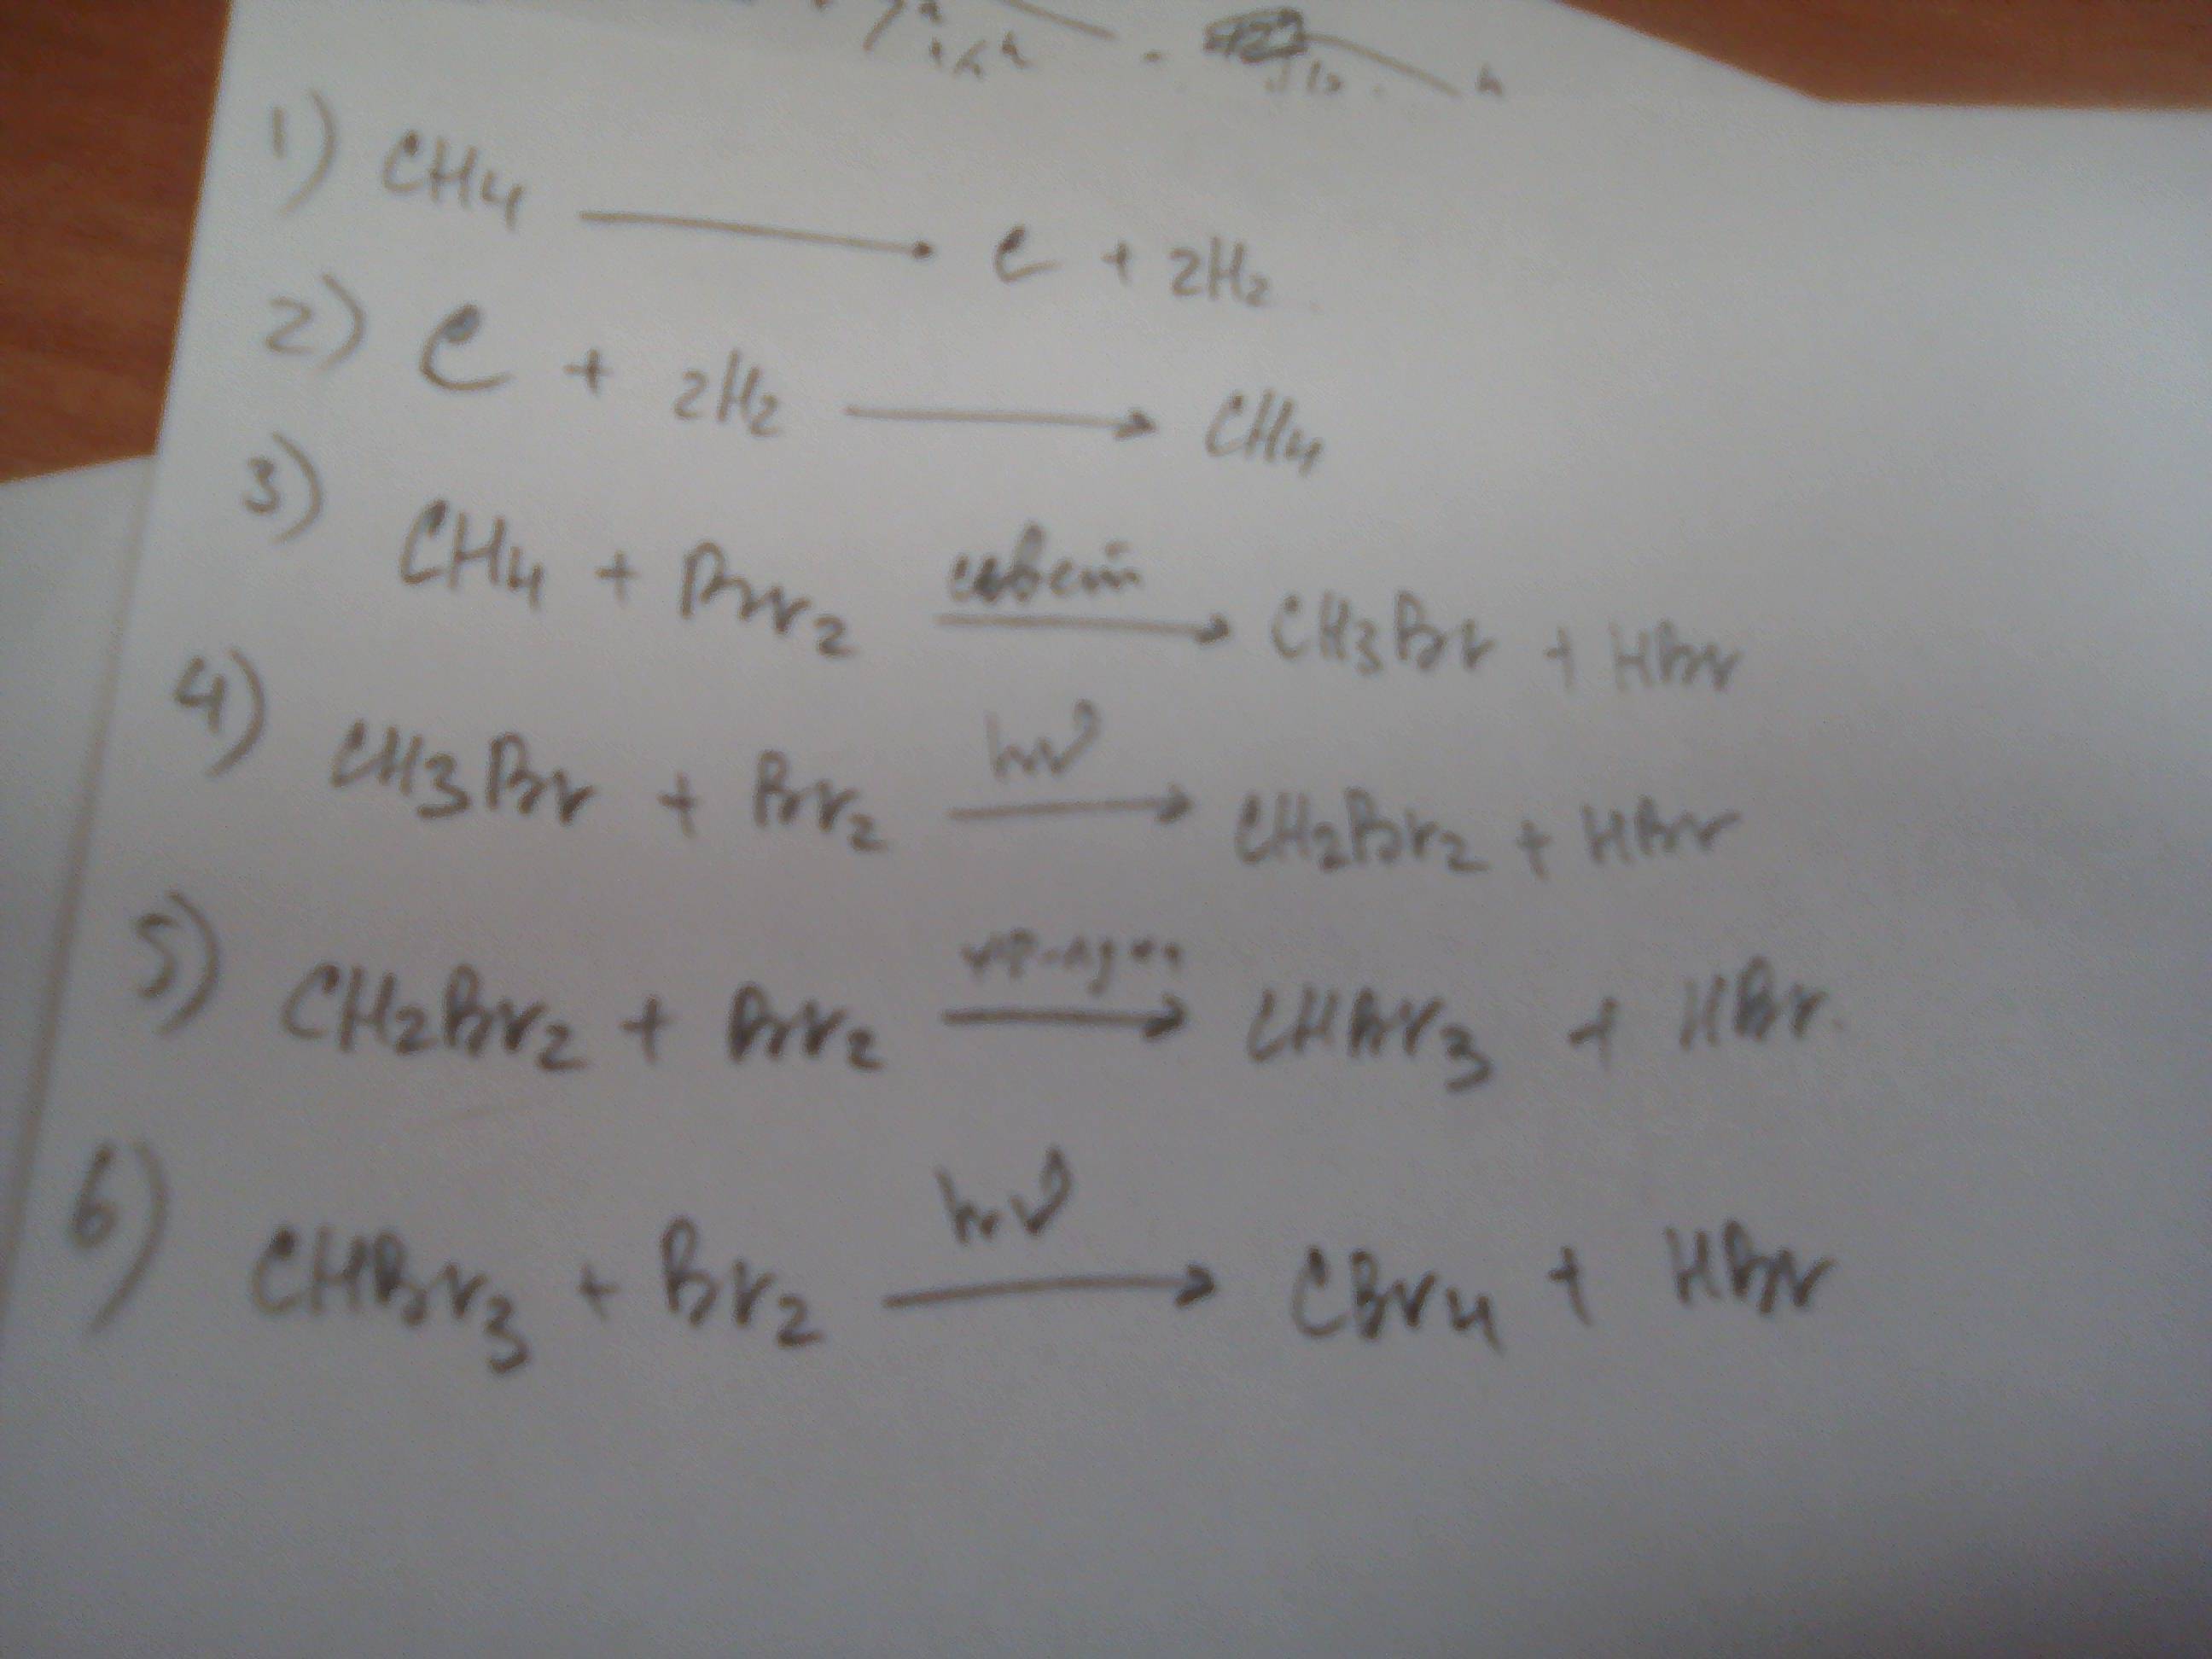 1) CH4 → C + 2H2
2) C + 2H2 → CH4
3) CH4 + Br2 свет → CH3Br + HBr
4) CH3Br + Br2 hν → CH2Br2 + HBr
5) CH2Br2 + Br2 → CHBr3 + HBr.
6) CHBr3 + Br2 hν → CBr4 + HBr